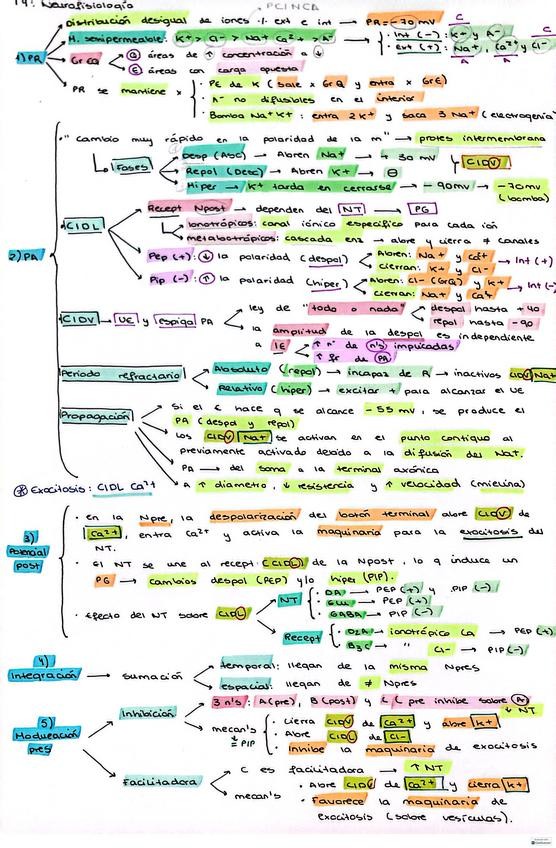 T4. Neurofisiología
PCINCA
Distribución desigual de iones ·/. ext e int → PR = -70 mv
H. semipermeable: K+ > Cl- > Na+ Ca2+ > A-
· Int (-): K+ y A-
· Ext (+): Na+, Ca2+ y Cl-
1) PR
Gr Q áreas de ↑ concentración a ↓
E áreas con carga opuesta
PR se mantiene x
· PE de K (sale x GrQ y entra x GrE)
· A- no difusibles en el interior
· Bomba Na+K+: entra 2K+ y saca 3 Na+ (electrogénica)
· "Cambio muy rápido en la polaridad de la m" → protes intermembrana
Fases
Desp (Asc) → Abren Na+ → + 30 mv
CIDV
Repol (Desc) → Abren K+ → ⊖
Hiper → K+ tarda en cerrarse → -90mv → -70mv (bomba)
2) PA
CIDL
Recept Npost → dependen del NT → PG
ionotrópicos: canal iónico específico para cada ion
metabotrópicos: cascada enz → abre y cierra ≠ canales
Pep (+): ↓ la polaridad (despol)
Abren: Na+ y Ca2+
cierran: K+ y Cl-
Int (+)
Pip (-): ↑ la polaridad (hiper)
Abren: Cl- (GrQ) y K+
cierran: Na+ y Ca2+
Int (-)
CIDV → UE y espiga PA
ley de "todo o nada"
despol hasta +40
repol hasta -90
la amplitud de la despol es independiente
a IE
↑ nº de (n's) implicadas
↑ fr de PA
Periodo refractario
Absoluto (repol) → incapaz de R → inactivos CIDV Na+
Relativo (hiper) → excitar + para alcanzar el UE
Propagación
Si el E hace q se alcance -55 mv, se produce el
PA (despol y repol)
Los CIDV Na+ se activan en el punto contiguo al
previamente activado debido a la difusión del Na+.
PA → del soma a la terminal axónica
A ↑ diametro, ↓ resistencia y ↑ velocidad (mielina)
* Exocitosis: CIDL Ca2+
3) Potencial post
· En la Npre, la despolarización del botón terminal abre CIDV de
Ca2+, entra Ca2+ y activa la maquinaria para la exocitosis del
NT.
· El NT se une al recept (CIDL) de la Npost, lo q induce un
PG → cambios despol (PEP) y/o hiper (PIP).
· Efecto del NT sobre CIDL
NT
· DA → PEP (+) y PIP (-)
· Glu → PEP (+)
· GABA → PIP (-)
Recept
· D2A → ionotrópico Ca → PEP (+)
· B3C → " Cl- → PIP (-)
4) Integración → sumación
temporal: llegan de la misma Npres
espacial: llegan de ≠ Npres
5) Modulación pres
Inhibición
3 n's: A (pre), B (post) y C (pre inhibe sobre A)
↓ NT
mecan's = PIP
· Cierra CIDV de Ca2+ y abre K+
· Abre CIDL de Cl-
· Inhibe la maquinaria de exocitosis
Facilitadora
C es facilitadora → ↑ NT
mecan's
· Abre CIDV de Ca2+ y cierra K+
· Favorece la maquinaria de
exocitosis (sobre vesículas).